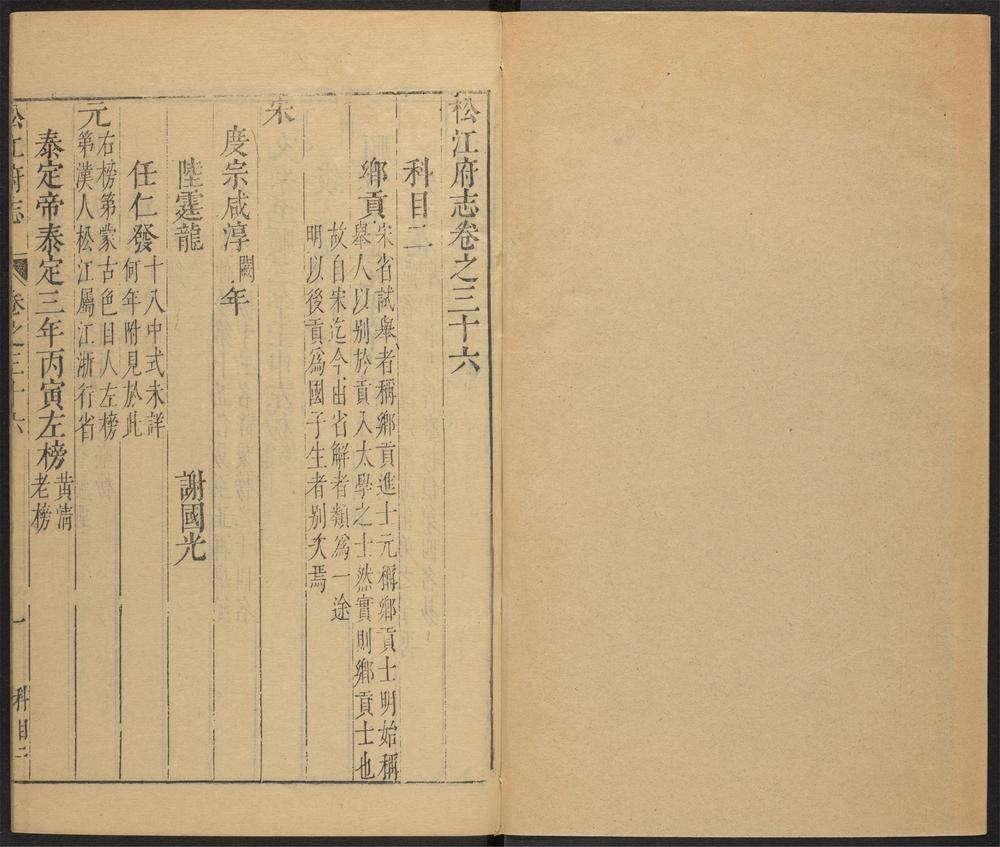 松江府志卷之三十六
科目二
鄉貢宋省試舉者稱鄉貢進士元稱鄉貢士明始稱
舉人以別於貢入太學之士然實則鄉貢士也
故自宋迄今由省解者類為一途
明以後貢為國子生者別次焉
宋
度宗咸淳闕年
陸霆龍 謝國光
任仁發十八中式未詳
何年附見於此
元右榜第蒙古色目人左榜
第漢人松江屬江浙行省
泰定帝泰定三年丙寅左榜黃清
老榜
松江府志 卷之三十六 一 科目二